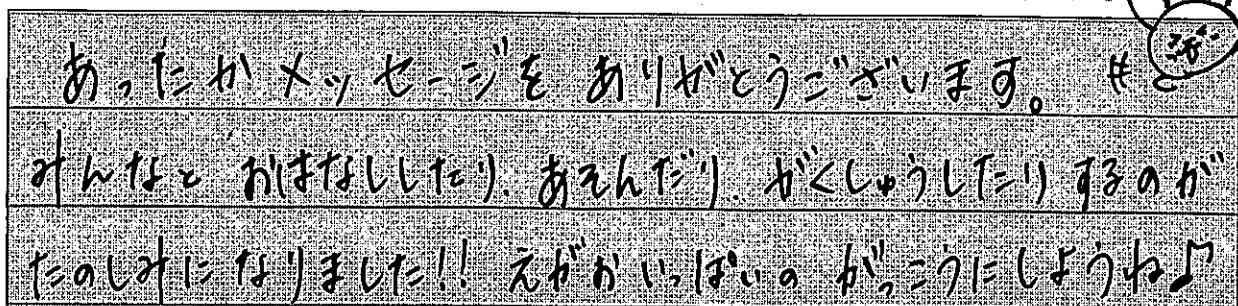 あったかメッセージを ありがとうございます。
みんなと おはなししたり、あそんだり、がくしゅうしたり するのが
たのしみに なりました!! えがお いっぱいの がっこうに しようね♪